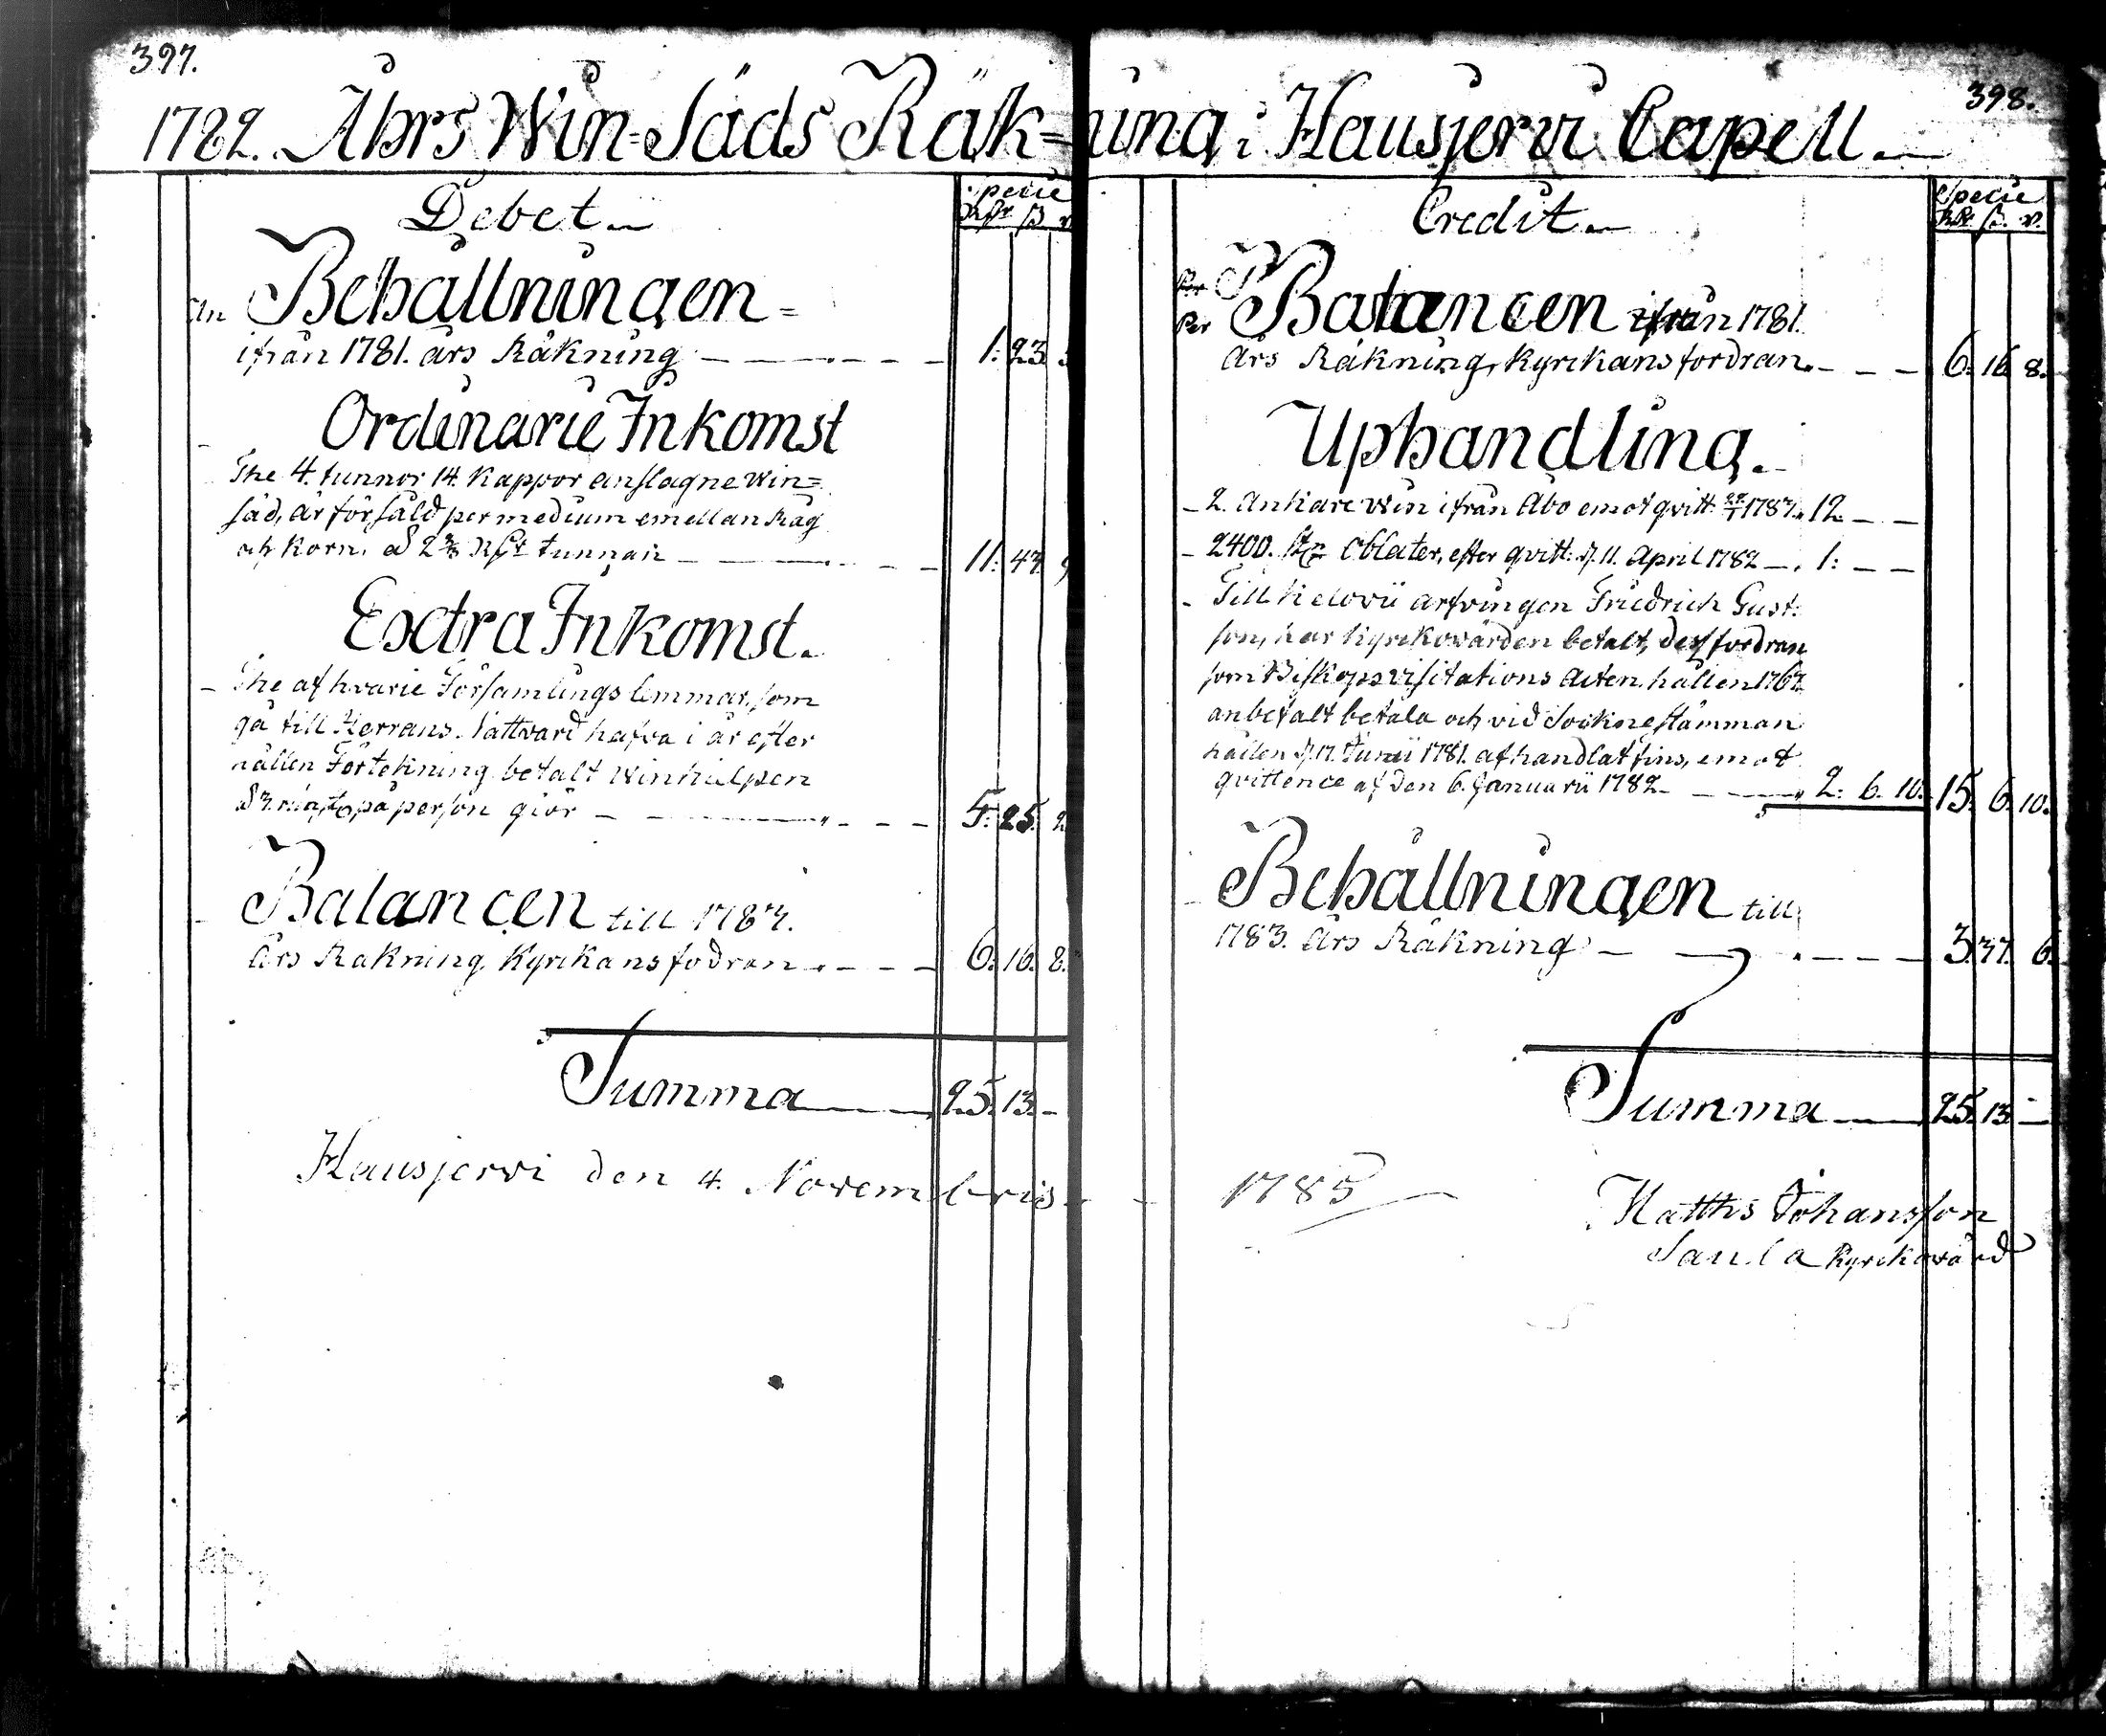 397.
1782. Åhrs Win-Säds Räk=
Debet
Specie
Rdr ß r
An Behållningen =
ifrån 1781. års Räkning 1: 23.
Ordinarie Inkomst
The 4. tunnor 14. Kappor anslagne win=
säd, är försåld per medium emellan Råg
och Korn. a 2 2/3 Rdr tunnan 11: 47.
Exctra Inkomst.
The af hvarje Församlings lemmar, som
gå till Herrans Nattvard hafva i år efter
hållen Förtekning betalt winhielpen
på person giör 5: 25. 2
Balancen till 1783.
års Räkning, Kyrkans fodran 6. 16. 8.
Summa 25. 13. -
Hausjervi den 4. Novembris
398.
ning i Hausjervi Capell
Credit
Specie
Rdr ß. r.
Per
Per Balancen ifrån 1781.
års Räkning, Kyrkans fordran 6. 16. 8.
Uphandling.
2. Ankare win ifrån Åbo emot qvitt. 12
2400. st Oblater, efter qvitt: d. 11. April 1782 1:
Till arfvingen Friedrich Gust:
son, har Kyrkowärden betalt, dess fordran
som Biskops visitations Acten, hållen 1767
anbefalt betala och vid Sockne stämman
hållen d. 17. Junii 1781. afhandlat fins, emot
qvittence af den 6. Januarii 1782 2: 6. 10. 15. 6. 10.
Behållningen till
1783. års Räkning 3. 37. 6.
Summa 25. 13. -
1785
Matths Johansson
Saula Kyrckowärd